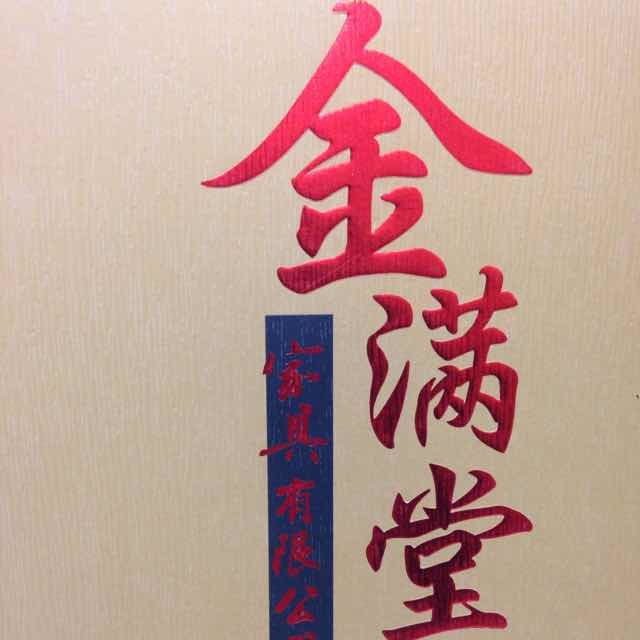 金满堂
家具有限公